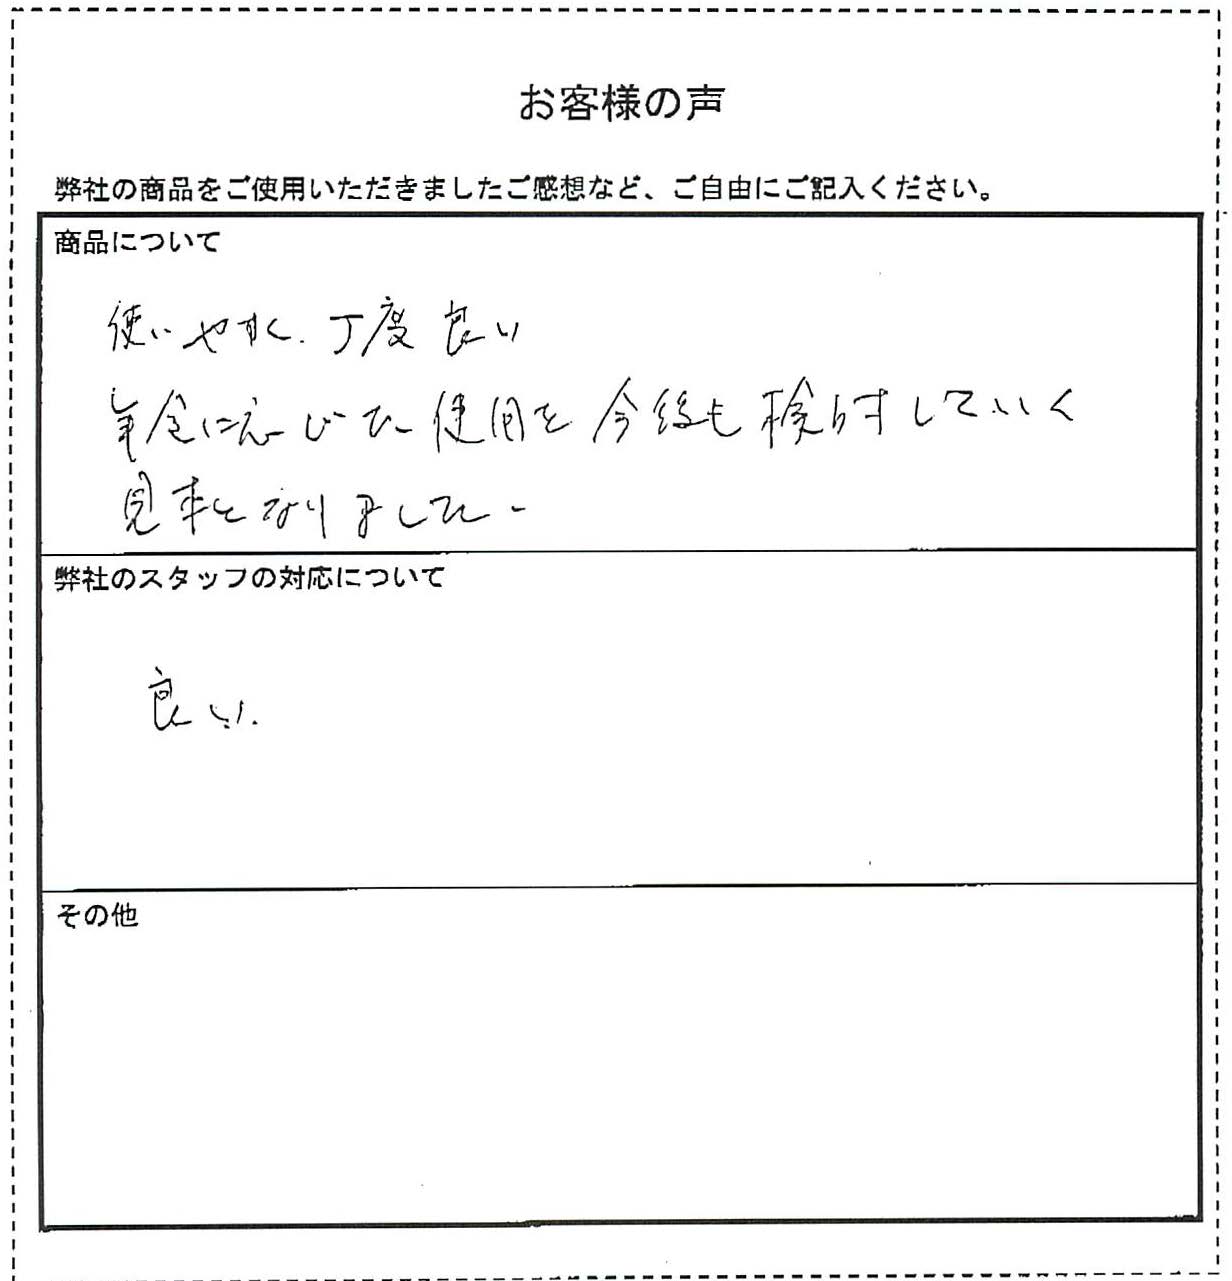 お客様の声
弊社の商品をご使用いただきましたご感想など、ご自由にご記入ください。
商品について
使いやすく、丁度良い
に応じた使用を今後も検討していく
見本となりました。
弊社のスタッフの対応について
良い。
その他